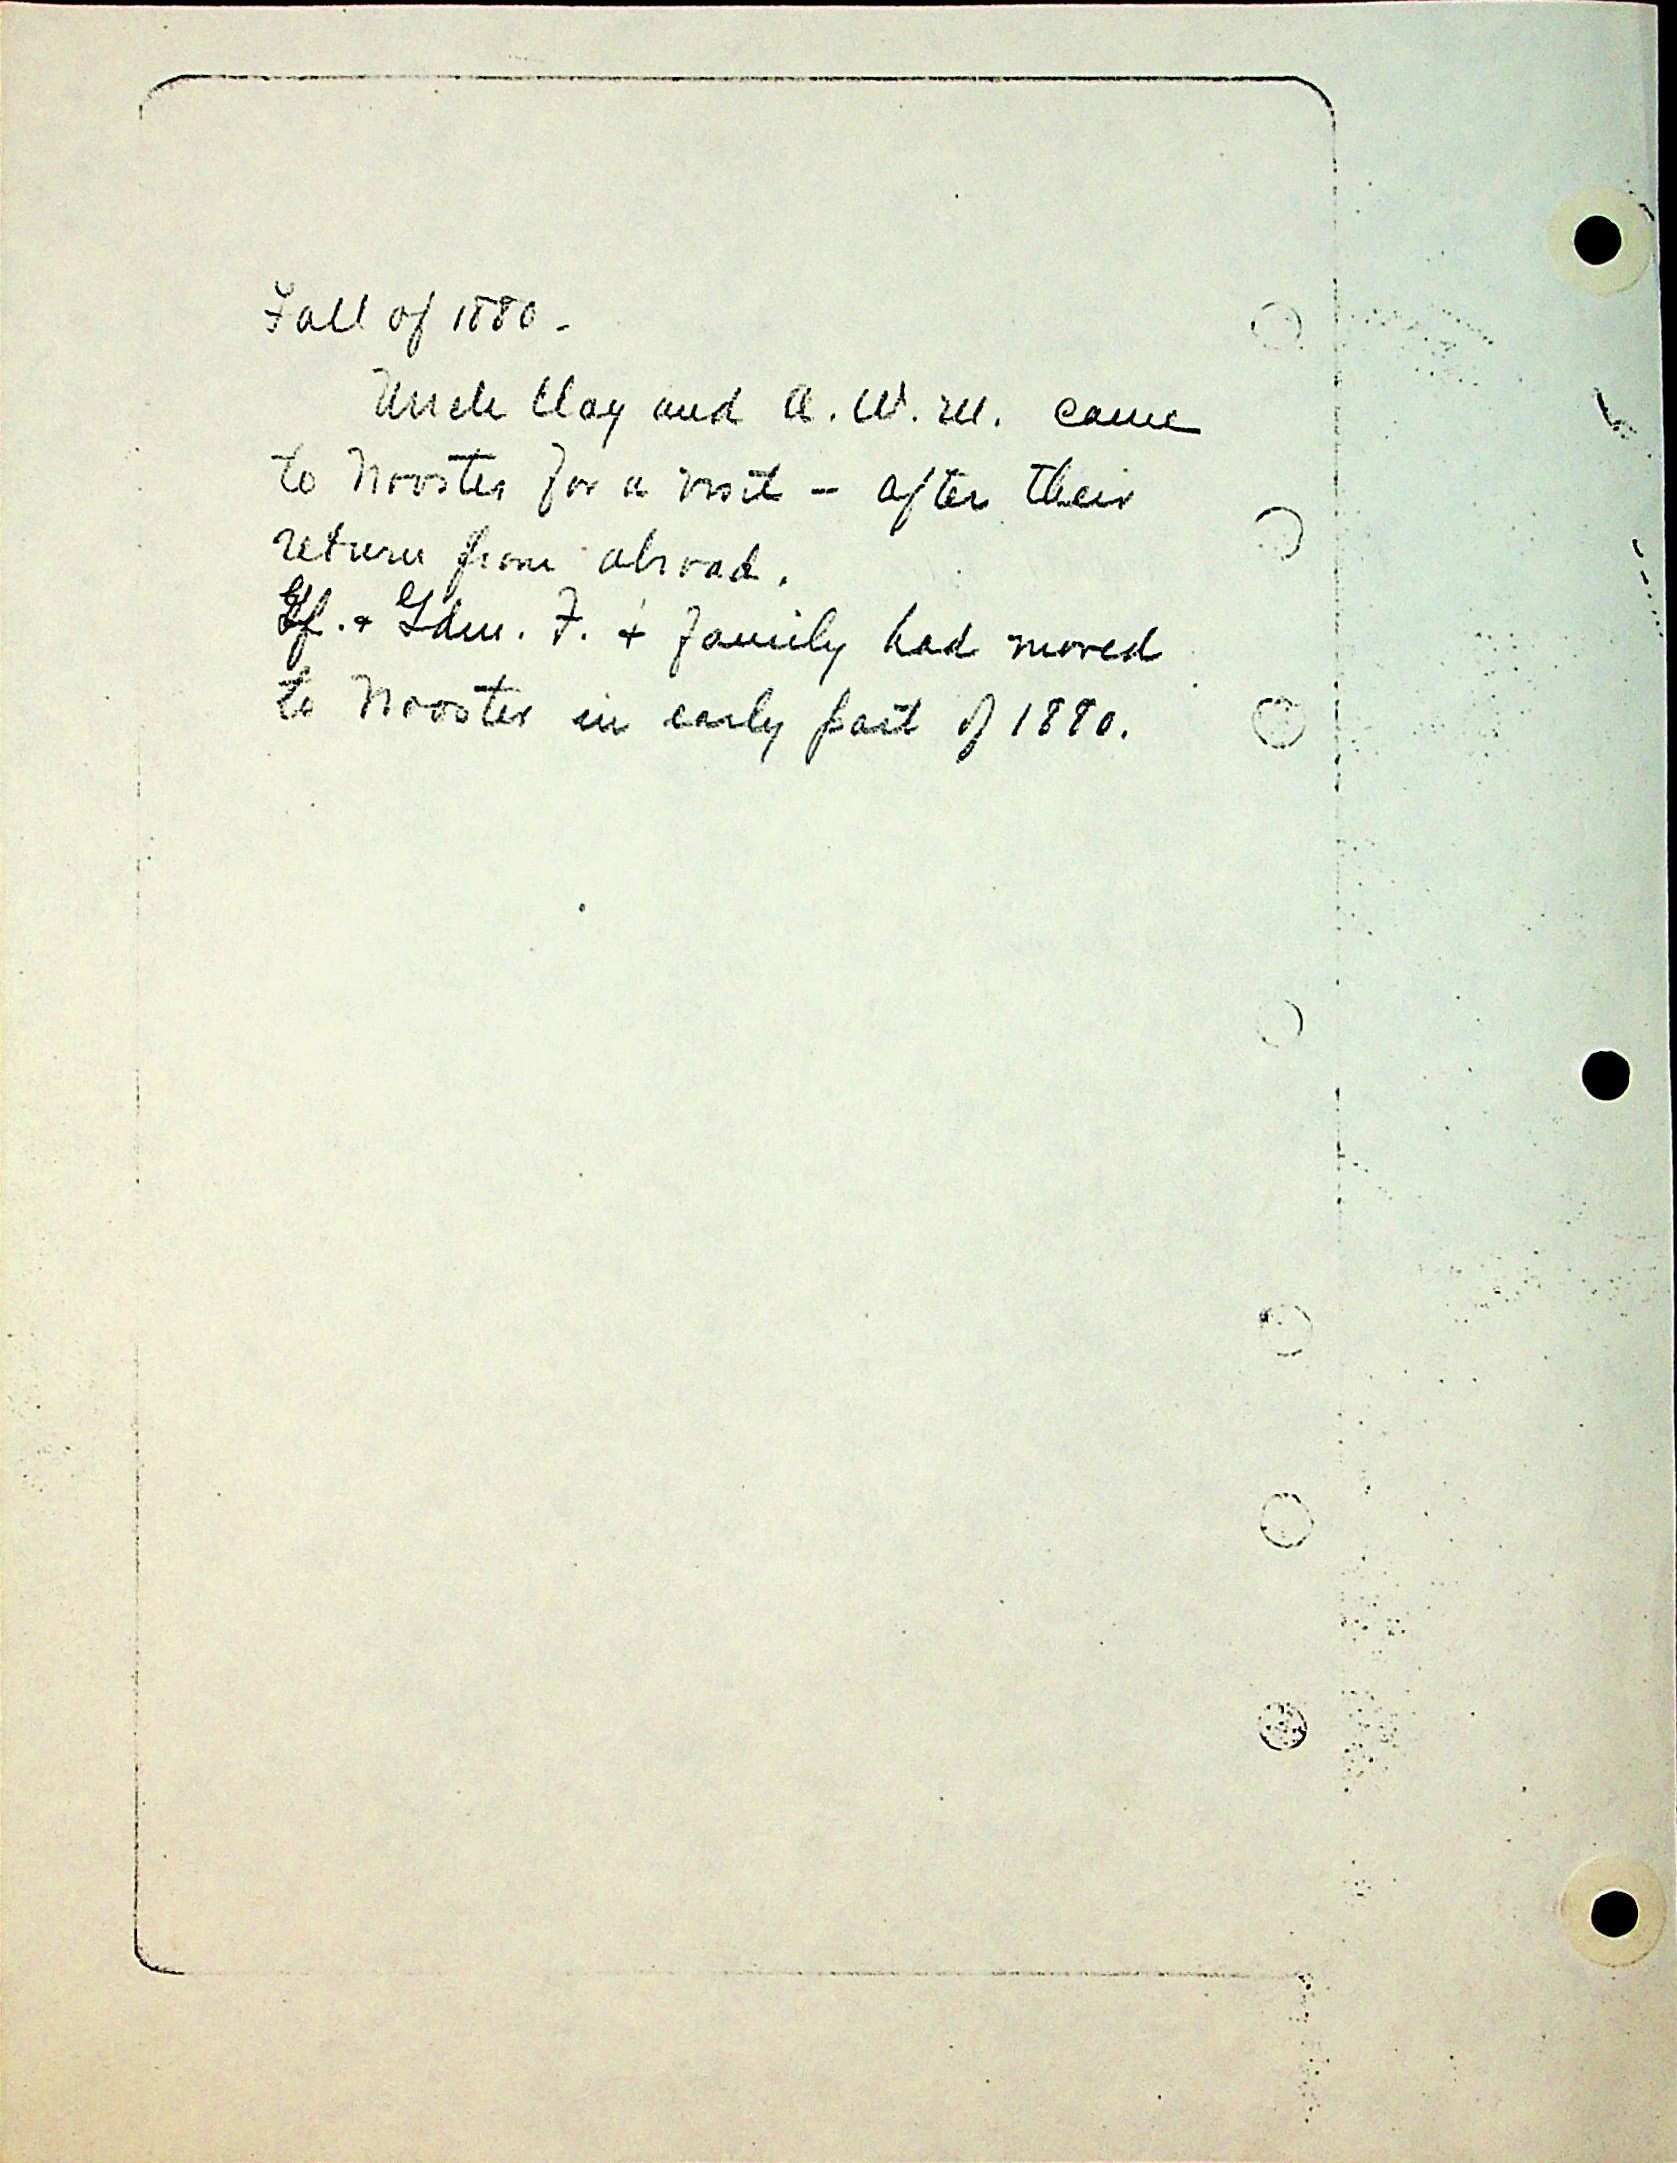 Fall of 1880 -
Uncle Clay and A. W. M. came
to Wooster for a visit - after their
return from abroad.
Gf. + Gdm. F. + family had moved
to Wooster in early part of 1880.